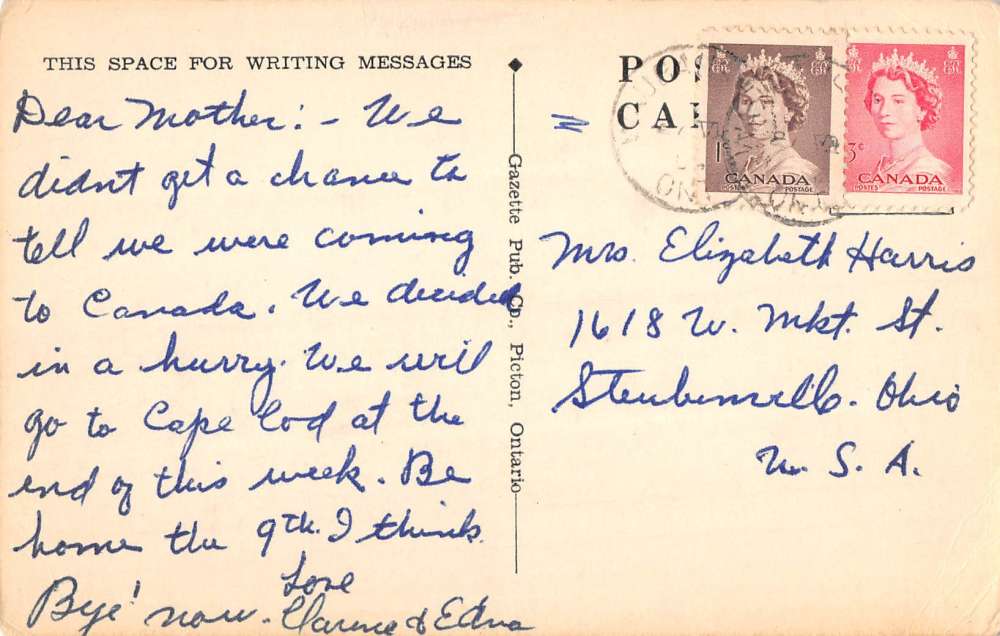 THIS SPACE FOR WRITING MESSAGES
Dear Mother:- We
didnt get a chance to
tell we were coming
to Canada. We decided
in a hurry. We will
go to Cape Cod at the
end of this week. Be
home the 9th. I think.
Bye! now. Love
Clarence & Edna
Gazette Pub. Co., Picton, Ontario
POS
CA
1¢
CANADA
POSTES POSTAGE
3¢
CANADA
POSTES POSTAGE
ONT
Mrs. Elizabeth Harris
1618 W. Mkt. St.
Steubenville. Ohio
U. S. A.